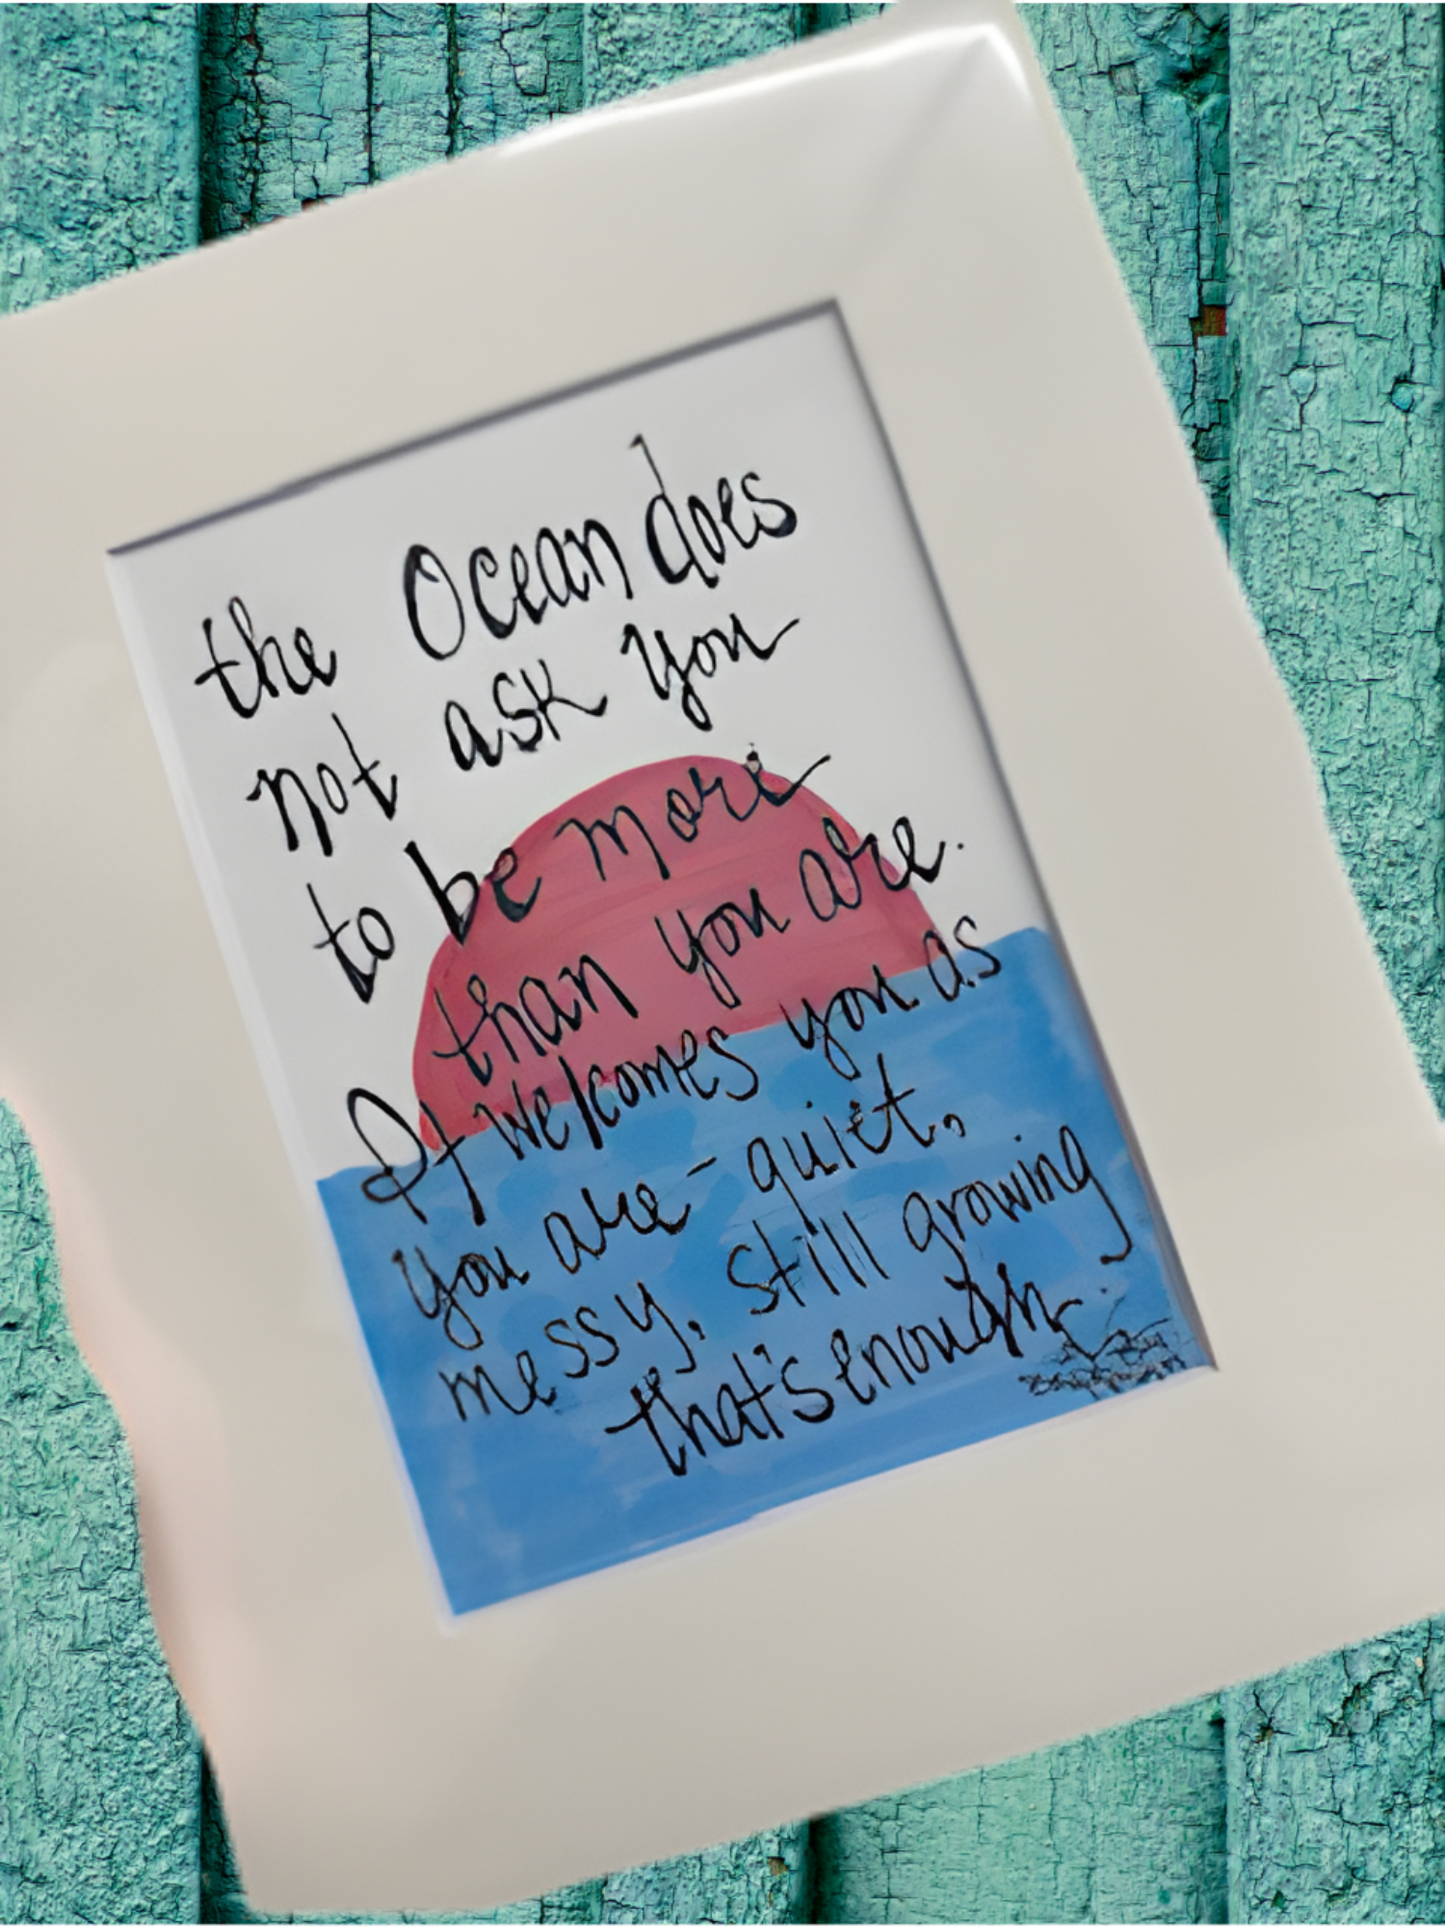 the Ocean does
not ask you
to be more
than you are.
It welcomes you as
you are - quiet,
messy, still growing
that's enough.